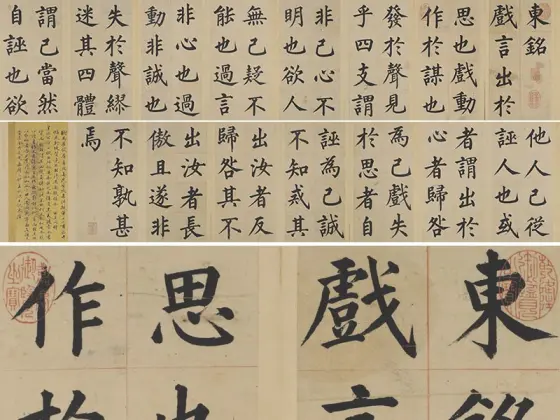 東銘
戲言出於
思也戲動
作於謀也
發於聲見
乎四支謂
非己心不
明也欲人
無己疑不
能也過言
非心也過
動非誠也
失於聲繆
迷其四體
謂己當然
自誣也欲
他人己從
誣人也或
者謂出於
心者歸咎
為己戲失
於思者自
誣為己誠
不知戒其
出汝者反
歸咎其不
出汝者長
傲且遂非
不知孰甚
焉
東銘
戲言
思也
作於